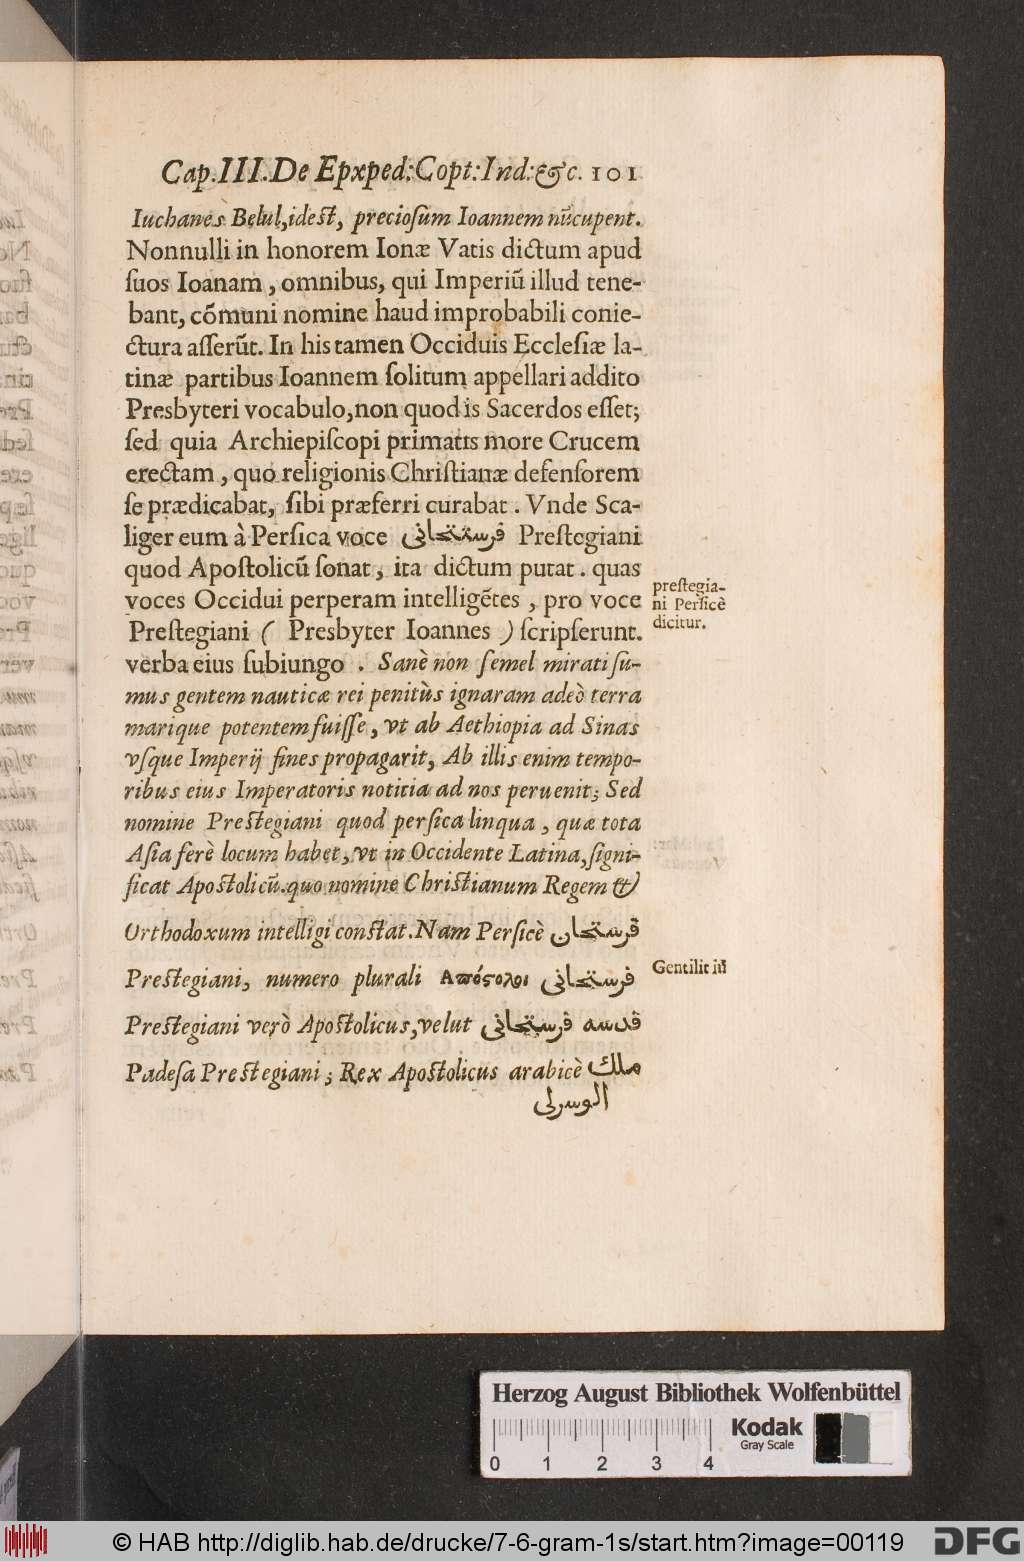 Cap. III. De Epxped: Copt: Ind: &c. 101
Iuchanes Belul, idest, preciosum Ioannem nũcupent.
Nonnulli in honorem Ionæ Vatis dictum apud
suos Ioanam, omnibus, qui Imperiũ illud tene-
bant, cõmuni nomine haud improbabili conie-
ctura asserũt. In his tamen Occiduis Ecclesiæ la-
tinæ partibus Ioannem solitum appellari addito
Presbyteri vocabulo, non quod is Sacerdos esset;
sed quia Archiepiscopi primatis more Crucem
erectam, quo religionis Christianæ defensorem
se prædicabat, sibi præferri curabat. Vnde Sca-
liger eum à Persica voce فرستجاني Prestegiani
quod Apostolicũ sonat, ita dictum putat. quas
voces Occidui perperam intelligẽtes, pro voce
Prestegiani ( Presbyter Ioannes ) scripserunt.
verba eius subiungo. Sanè non semel mirati su-
mus gentem nauticæ rei penitùs ignaram adeò terra
marique potentem fuisse, vt ab Aethiopia ad Sinas
vsque Imperij fines propagarit, Ab illis enim tempo-
ribus eius Imperatoris notitia ad nos peruenit; Sed
nomine Prestegiani quod persica linqua, quæ tota
Asia ferè locum habet, vt in Occidente Latina, signi-
ficat Apostolicũ. quo nomine Christianum Regem &
Orthodoxum intelligi constat. Nam Persicè فرستجان
Prestegiani, numero plurali Απόςολοι فرستجاني
Prestegiani verò Apostolicus, velut قدسه فرستجاني
Padesa Prestegiani; Rex Apostolicus arabicè ملك
الوسرلي
prestegia-
ni Persicè
dicitur.
Gentilitiũ
Herzog August Bibliothek Wolfenbüttel
Kodak
Gray Scale
0 1 2 3 4
© HAB http://diglib.hab.de/drucke/7-6-gram-1s/start.htm?image=00119
DFG